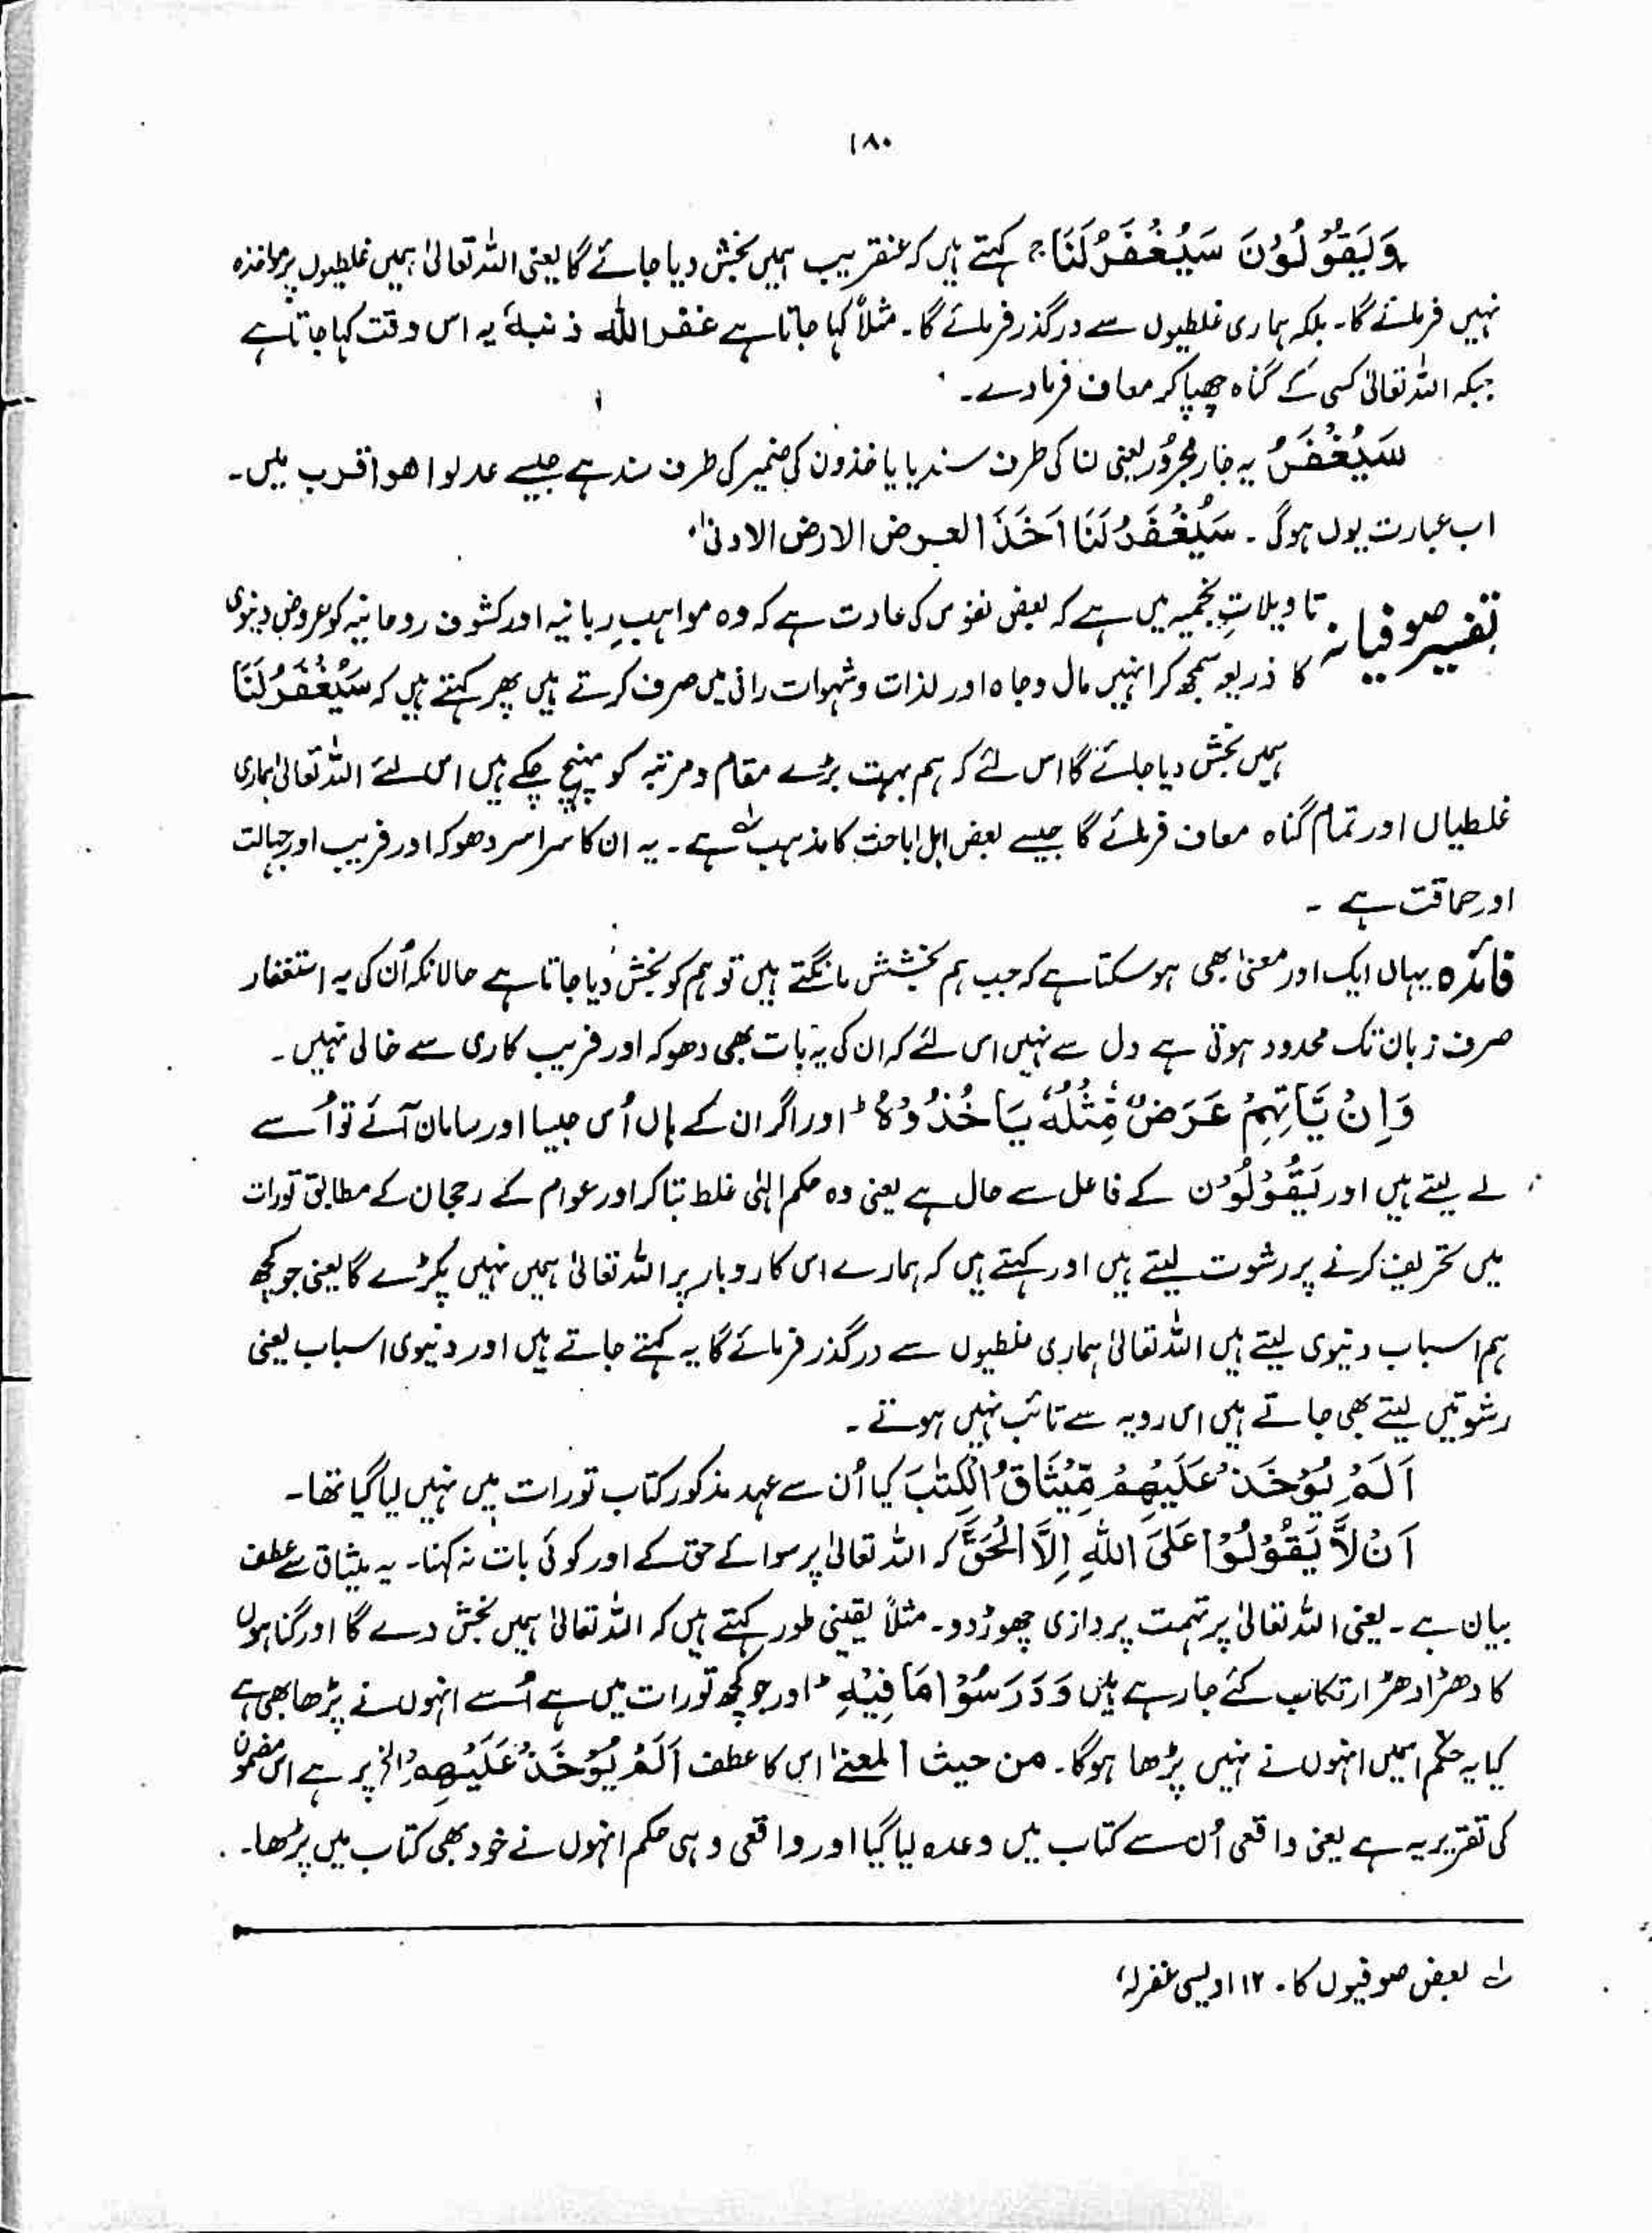 ۱۸۰
وَیَقُوْلُوْنَ سَیُغْفَرُلَنَا ج کہتے ہیں کہ عنقریب ہمیں بخش دیا جائے گا یعنی اللہ تعالیٰ ہمیں غلطیوں پر مواخذہ
نہیں فرمائے گا۔ بلکہ ہماری غلطیوں سے درگذر فرمائے گا۔ مثلاً کہا جاتا ہے غفر اللہ ذنبہٗ یہ اس وقت کہا جاتا ہے
جبکہ اللہ تعالیٰ کسی کے گناہ چھپا کر معاف فرمادے۔
سَیُغْفَرُ یہ جار مجرور یعنی لنا کی طرف مسند یا یاخذون کی ضمیر کی طرف مسند ہے جیسے عدلوا ھو اقرب میں۔
اب عبارت یوں ہوگی۔ سَیُغْفَرُلَنَا اَخَذَ العرض الارض الادنیٰ
تفسیر صوفیانہ تاویلاتِ نجمیہ میں ہے کہ بعض نفوس کی عادت ہے کہ وہ مواہبِ ربانیہ اور کشوف روحانیہ کو عروض دنیوی
کا ذریعہ سمجھ کر انہیں مال و جاہ اور لذات و شہوات رانی میں صرف کرتے ہیں پھر کہتے ہیں کہ سَیُغْفَرُلَنَا
ہمیں بخش دیا جائے گا اس لئے کہ ہم بہت بڑے مقام و مرتبہ کو پہنچ چکے ہیں اس لئے اللہ تعالیٰ ہماری
غلطیاں اور تمام گناہ معاف فرمائے گا جیسے بعض اہل اباحت کا مذہب لہ ہے۔ یہ ان کا سراسر دھوکہ اور فریب اور جہالت
اور حماقت ہے۔
فائدہ یہاں ایک اور معنیٰ بھی ہو سکتا ہے کہ جب ہم بخشش مانگتے ہیں تو ہم کو بخش دیا جاتا ہے حالانکہ اُن کی یہ استغفار
صرف زبان تک محدود ہوتی ہے دل سے نہیں اس لئے کہ ان کی یہ بات بھی دھوکہ اور فریب کاری سے خالی نہیں۔
وَاِنْ یَّاْتِہِمْ عَرَضٌ مِّثْلُہٗ یَاْخُذُوْہُ ط اور اگر ان کے ہاں اُس جیسا اور سامان آئے تو اُسے
لے لیتے ہیں اور یَقُوْلُوْن کے فاعل سے حال ہے یعنی وہ حکم الٰہی غلط بتا کر اور عوام کے رحجان کے مطابق تورات
میں تحریف کرنے پر رشوت لیتے ہیں اور کہتے ہیں کہ ہمارے اس کاروبار پر اللہ تعالیٰ ہمیں نہیں پکڑے گا یعنی جو کچھ
ہم اسباب دنیوی لیتے ہیں اللہ تعالیٰ ہماری غلطیوں سے درگذر فرمائے گا یہ کہتے جاتے ہیں اور دنیوی اسباب یعنی
رشوتیں لیتے بھی جاتے ہیں اس رویہ سے تائب نہیں ہوتے۔
اَلَمْ یُؤْخَذْ عَلَیْھِمْ مِّیْثَاقُ الْکِتٰبَ کیا اُن سے عہد مذکور کتاب تورات میں نہیں لیا گیا تھا۔
اَنْ لَّا یَقُوْلُوْا عَلَی اللّٰہِ اِلَّا الْحَقَّ کہ اللہ تعالیٰ پر سوائے حق کے اور کوئی بات نہ کہنا۔ یہ میثاق سے عطف
بیان ہے۔ یعنی اللہ تعالیٰ پر تہمت پردازی چھوڑ دو۔ مثلاً یقینی طور کہتے ہیں کہ اللہ تعالیٰ ہمیں بخش دے گا اور گناہوں
کا دھڑا دھڑ ارتکاب کئے جا رہے ہیں وَدَرَسُوْا مَا فِیْہِ ط اور جو کچھ تورات میں ہے اُسے انہوں نے پڑھا بھی ہے
کیا یہ حکم اسمیں انہوں نے نہیں پڑھا ہوگا۔ من حیث المعنیٰ اس کا عطف اَلَمْ یُؤْخَذْ عَلَیْھِمْ الخ پر ہے اس مضمون
کی تقریر یہ ہے یعنی واقعی اُن سے کتاب میں وعدہ لیا گیا اور واقعی وہی حکم انہوں نے خود بھی کتاب میں پڑھا۔
لہ بعض صوفیوں کا۔ ۱۲ اویسی غفرلہٗ